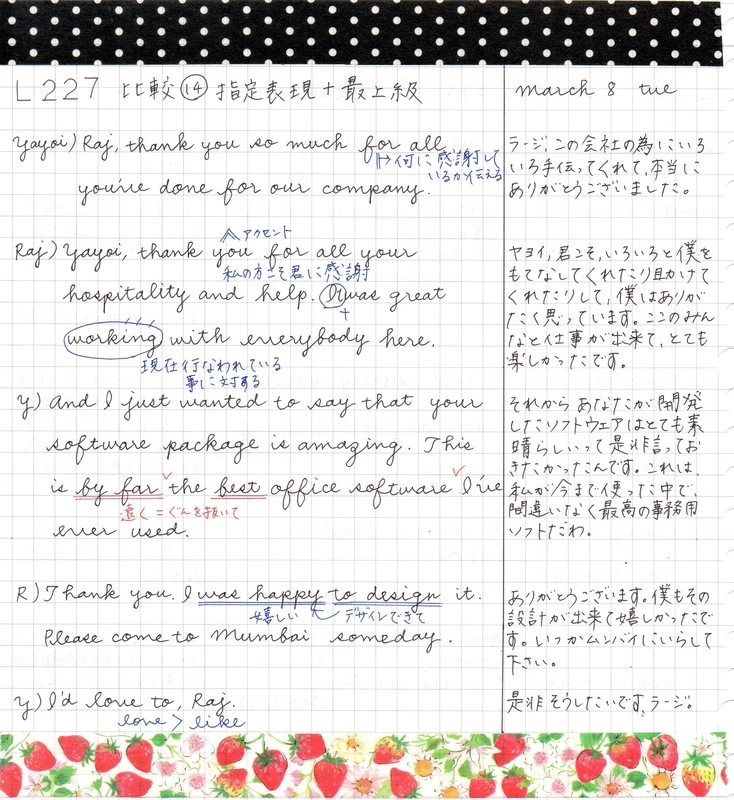 L227 比較⑭ 指定表現+最上級
march 8 tue
Yayoi) Raj, thank you so much for all
何に感謝して
いるか伝える
you've done for our company.
ラージ、この会社の為にいろ
いろ手伝ってくれて、本当に
ありがとうございました。
アクセント
Raj) Yayoi, thank you for all your
私の方こそ君に感謝
hospitality and help. It was great
+
working with everybody here.
現在行なわれている
事に対する
ヤヨイ、君こそ、いろいろと僕を
もてなしてくれたり助けて
くれたりして、僕はありが
たく思っています。ここのみん
なと仕事が出来て、とても
楽しかったです。
Y) And I just wanted to say that your
software package is amazing. This
is by far the best office software I've
遠く=ぐんを抜いて
ever used.
それから あなたが開発
したソフトウェアはとても素
晴らしいって是非言ってお
きたかったんです。これは、
私が今まで使った中で、
間違いなく最高の事務用
ソフトだわ。
R) Thank you. I was happy to design it.
嬉しい デザインできて
Please come to Mumbai someday.
ありがとうございます。僕もその
設計が出来て嬉しかったで
す。いつかムンバイにいらして
下さい。
Y) I'd love to, Raj.
love > like
是非そうしたいです、ラージ。